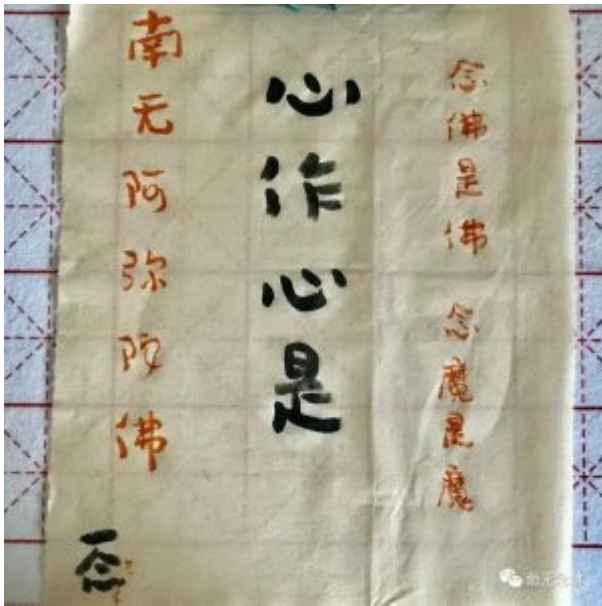 念佛是佛 念魔是魔
心作心是
南无阿弥阿佛
一念